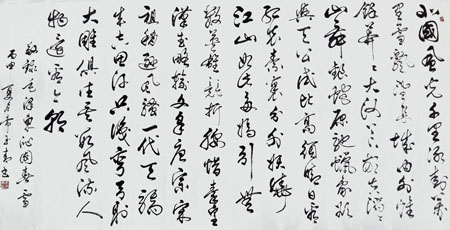 北國風光千里冰封萬
里雪飄望長城內外惟
餘莽莽大河上下頓失滔滔
山舞銀蛇原馳蠟象欲
與天公試比高須晴日看
紅裝素裹分外妖嬈
江山如此多嬌引無
數英雄競折腰惜秦皇
漢武略輸文采唐宗宋
祖稍遜風騷一代天驕
成吉思汗只識彎弓射
大雕俱往矣數風流人
物還看今朝
敬錄毛澤東沁園春雪
夏月